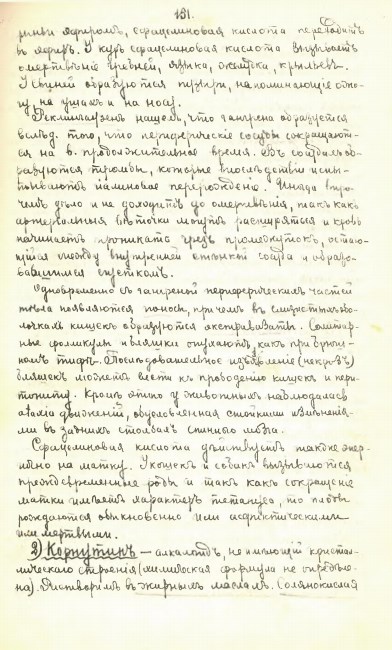 131.
эфиромъ, сфацелиновая кислота переходитъ
въ эфиръ. У куръ сфацелиновая кислота вызываетъ
омертвѣніе гребней, языка, крыльевъ.
У свиней образуются пузыри, напоминающіе
на ушахъ и на носу.
Реклингаузенъ нашелъ, что гангрена образуется
вслѣд. того, что периферическіе сосуды сокращают-
ся на б. продолжительное время. Въ сосудахъ об-
разуются тромбы, которые впослѣдствіи испы-
тываютъ гіалиновое перерожденіе. Иногда впро-
чемъ дѣло и не доходитъ до омертвѣнія, такъ какъ
артеріальныя вѣточки могутъ расширяться и кровь
начинаетъ проникать чрезъ промежутокъ, остаю-
щійся между внутренней стѣнкой сосуда и образо-
вавшимся сгусткомъ.
Одновременно съ гангреной периферическихъ частей
тѣла появляются поносы, при чемъ въ слизистыхъ обо-
лочкахъ кишекъ образуются экстравазаты. Солитар-
ные фолликулы и бляшки опухаютъ, какъ при брюш-
номъ тифѣ. Послѣдовательное изъязвленіе (некрозъ)
бляшекъ можетъ вести къ прободенію кишекъ и пери-
тониту. Кромѣ этого у животныхъ наблюдалась
атаксія движеній, обусловленная стойкими измѣненія-
ми въ заднихъ столбахъ спинного мозга.
Сфацелиновая кислота дѣйствуетъ также энер-
гично на матку. У кошекъ и собакъ вызываются
преждевременные роды и такъ какъ сокращеніе
матки имѣетъ характеръ тетануса, то плоды
рождаются обыкновенно или асфиктическими
или мертвыми.
2) Корнутинъ — алкалоидъ, не имѣющій кристал-
лическаго строенія (химическая формула не опредѣле-
на). Растворимъ въ жирныхъ маслахъ. Солянокислая